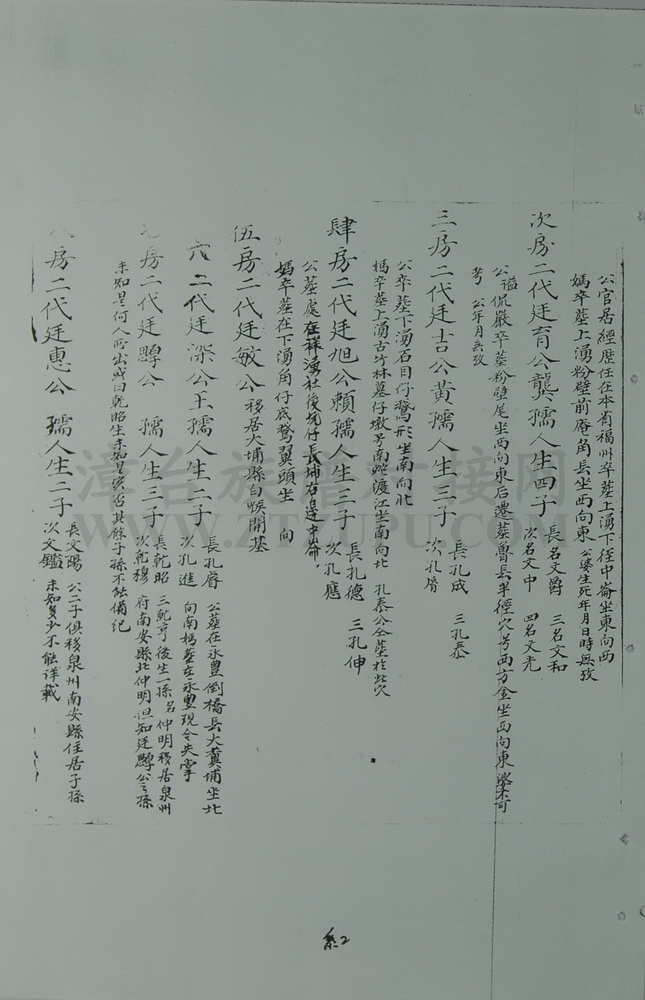 公官居經歷任在本省福州卒墓上湧下徑中崙坐東向西
媽卒墓上湧粉壁前厝角長坐西向東公婆生死年月日時無攷
次房二代廷育公龔孺人生四子 長名文爵 三名文和
次名文中 四名文光
公諡侃嚴卒墓粉壁尾坐西向東后遷墓曾長半徑穴号西方金坐西向東婆不可
考 公年月無攷
三房二代廷吉公黃孺人生三子 長孔成 三孔泰
次孔脩
公卒墓下湧石目仔鵞形坐南向北
媽卒墓上湧古竹林墓仔墩号南蛇渡江坐南向北 孔泰公仝墓於此穴
肆房二代廷旭公賴孺人生三子 長孔德 三孔伸
次孔應
公墓處在祥湧社後坑仔長埔右邊中崙
媽卒墓在下湧角仔底鵞翼頭坐 向
伍房二代廷敏公移居大埔縣白堠開基
六 二代廷深公王孺人生二子 長孔睿 公墓在永豐倒橋長大糞埔坐北
次孔進 向南媽墓在永豐現令失掌
房二代廷驆公 孺人生三子 長乾昭 三乾亨後生一孫名仲明移居泉州
次乾穆 府南安縣北仲明但知廷驆公之孫
未知是何人所出或曰乾昭生未知是实否其餘子孫不能備紀
房二代廷惠公 孺人生二子 長文陽 公二子俱移泉州南安縣住居子孫
次文鑑 未知多少不能詳載
系2
漳台族譜对接网
WWW.ZTZUPU.COM